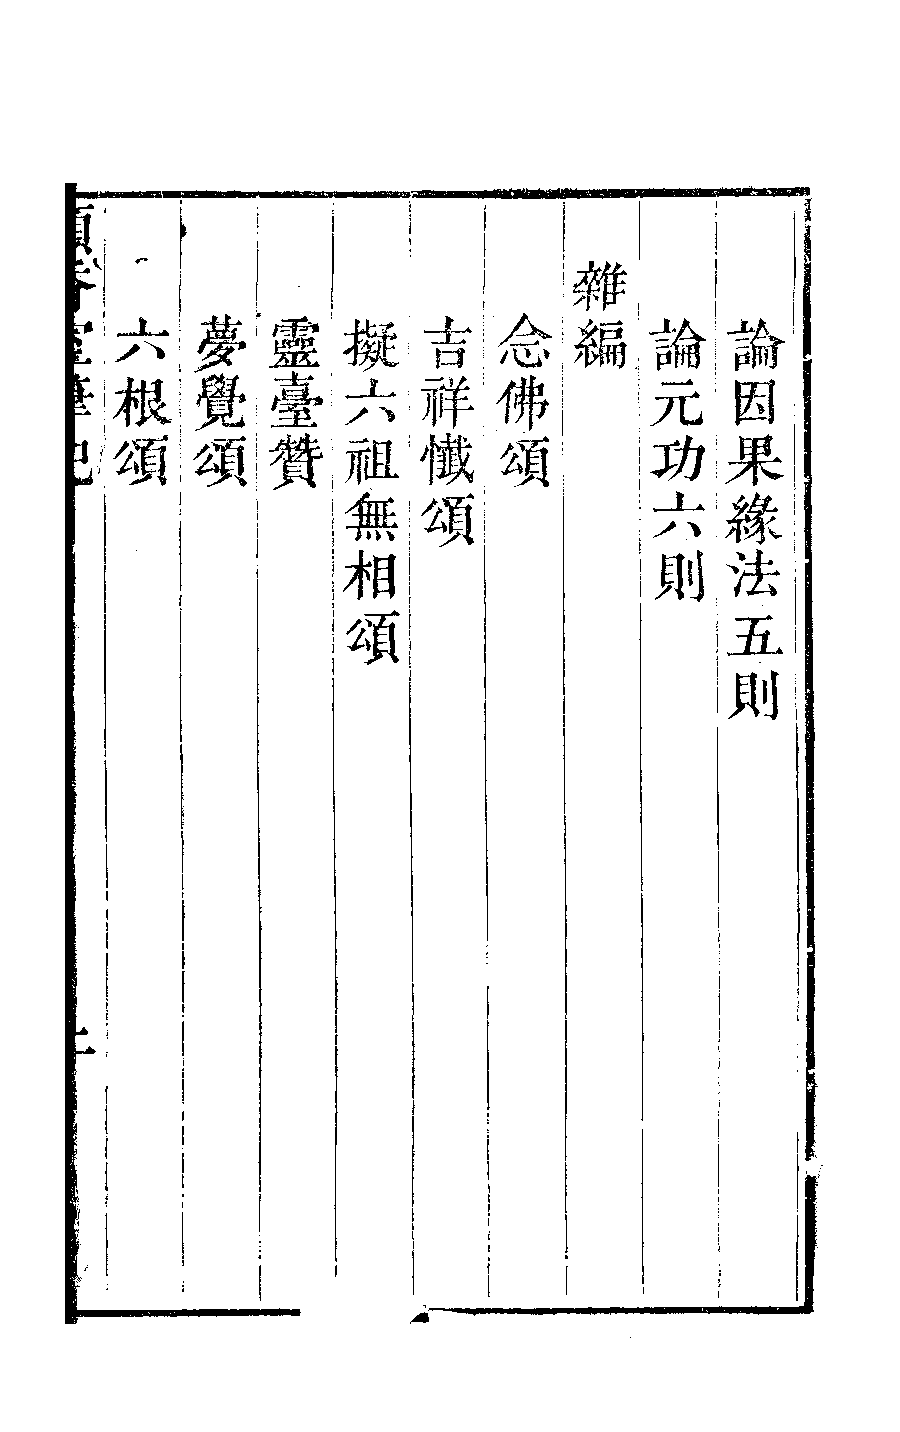 論因果緣法五則
論元功六則
雜編
念佛頌
吉祥懺頌
擬六祖無相頌
靈臺贊
夢覺頌
六根頌